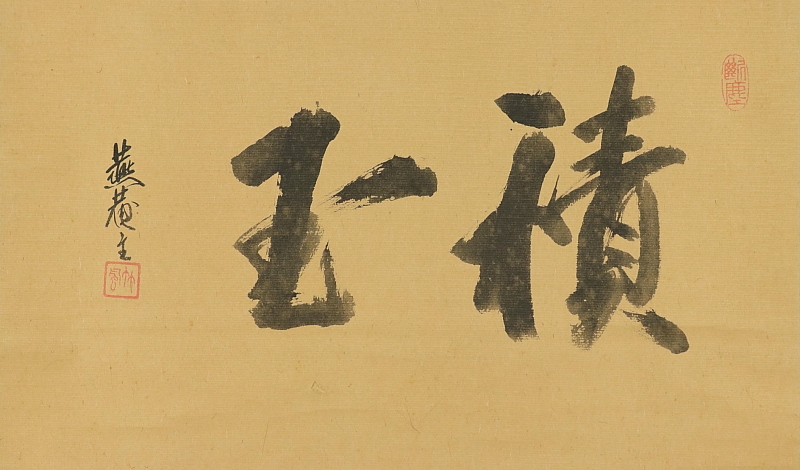 積玉
燕菴主